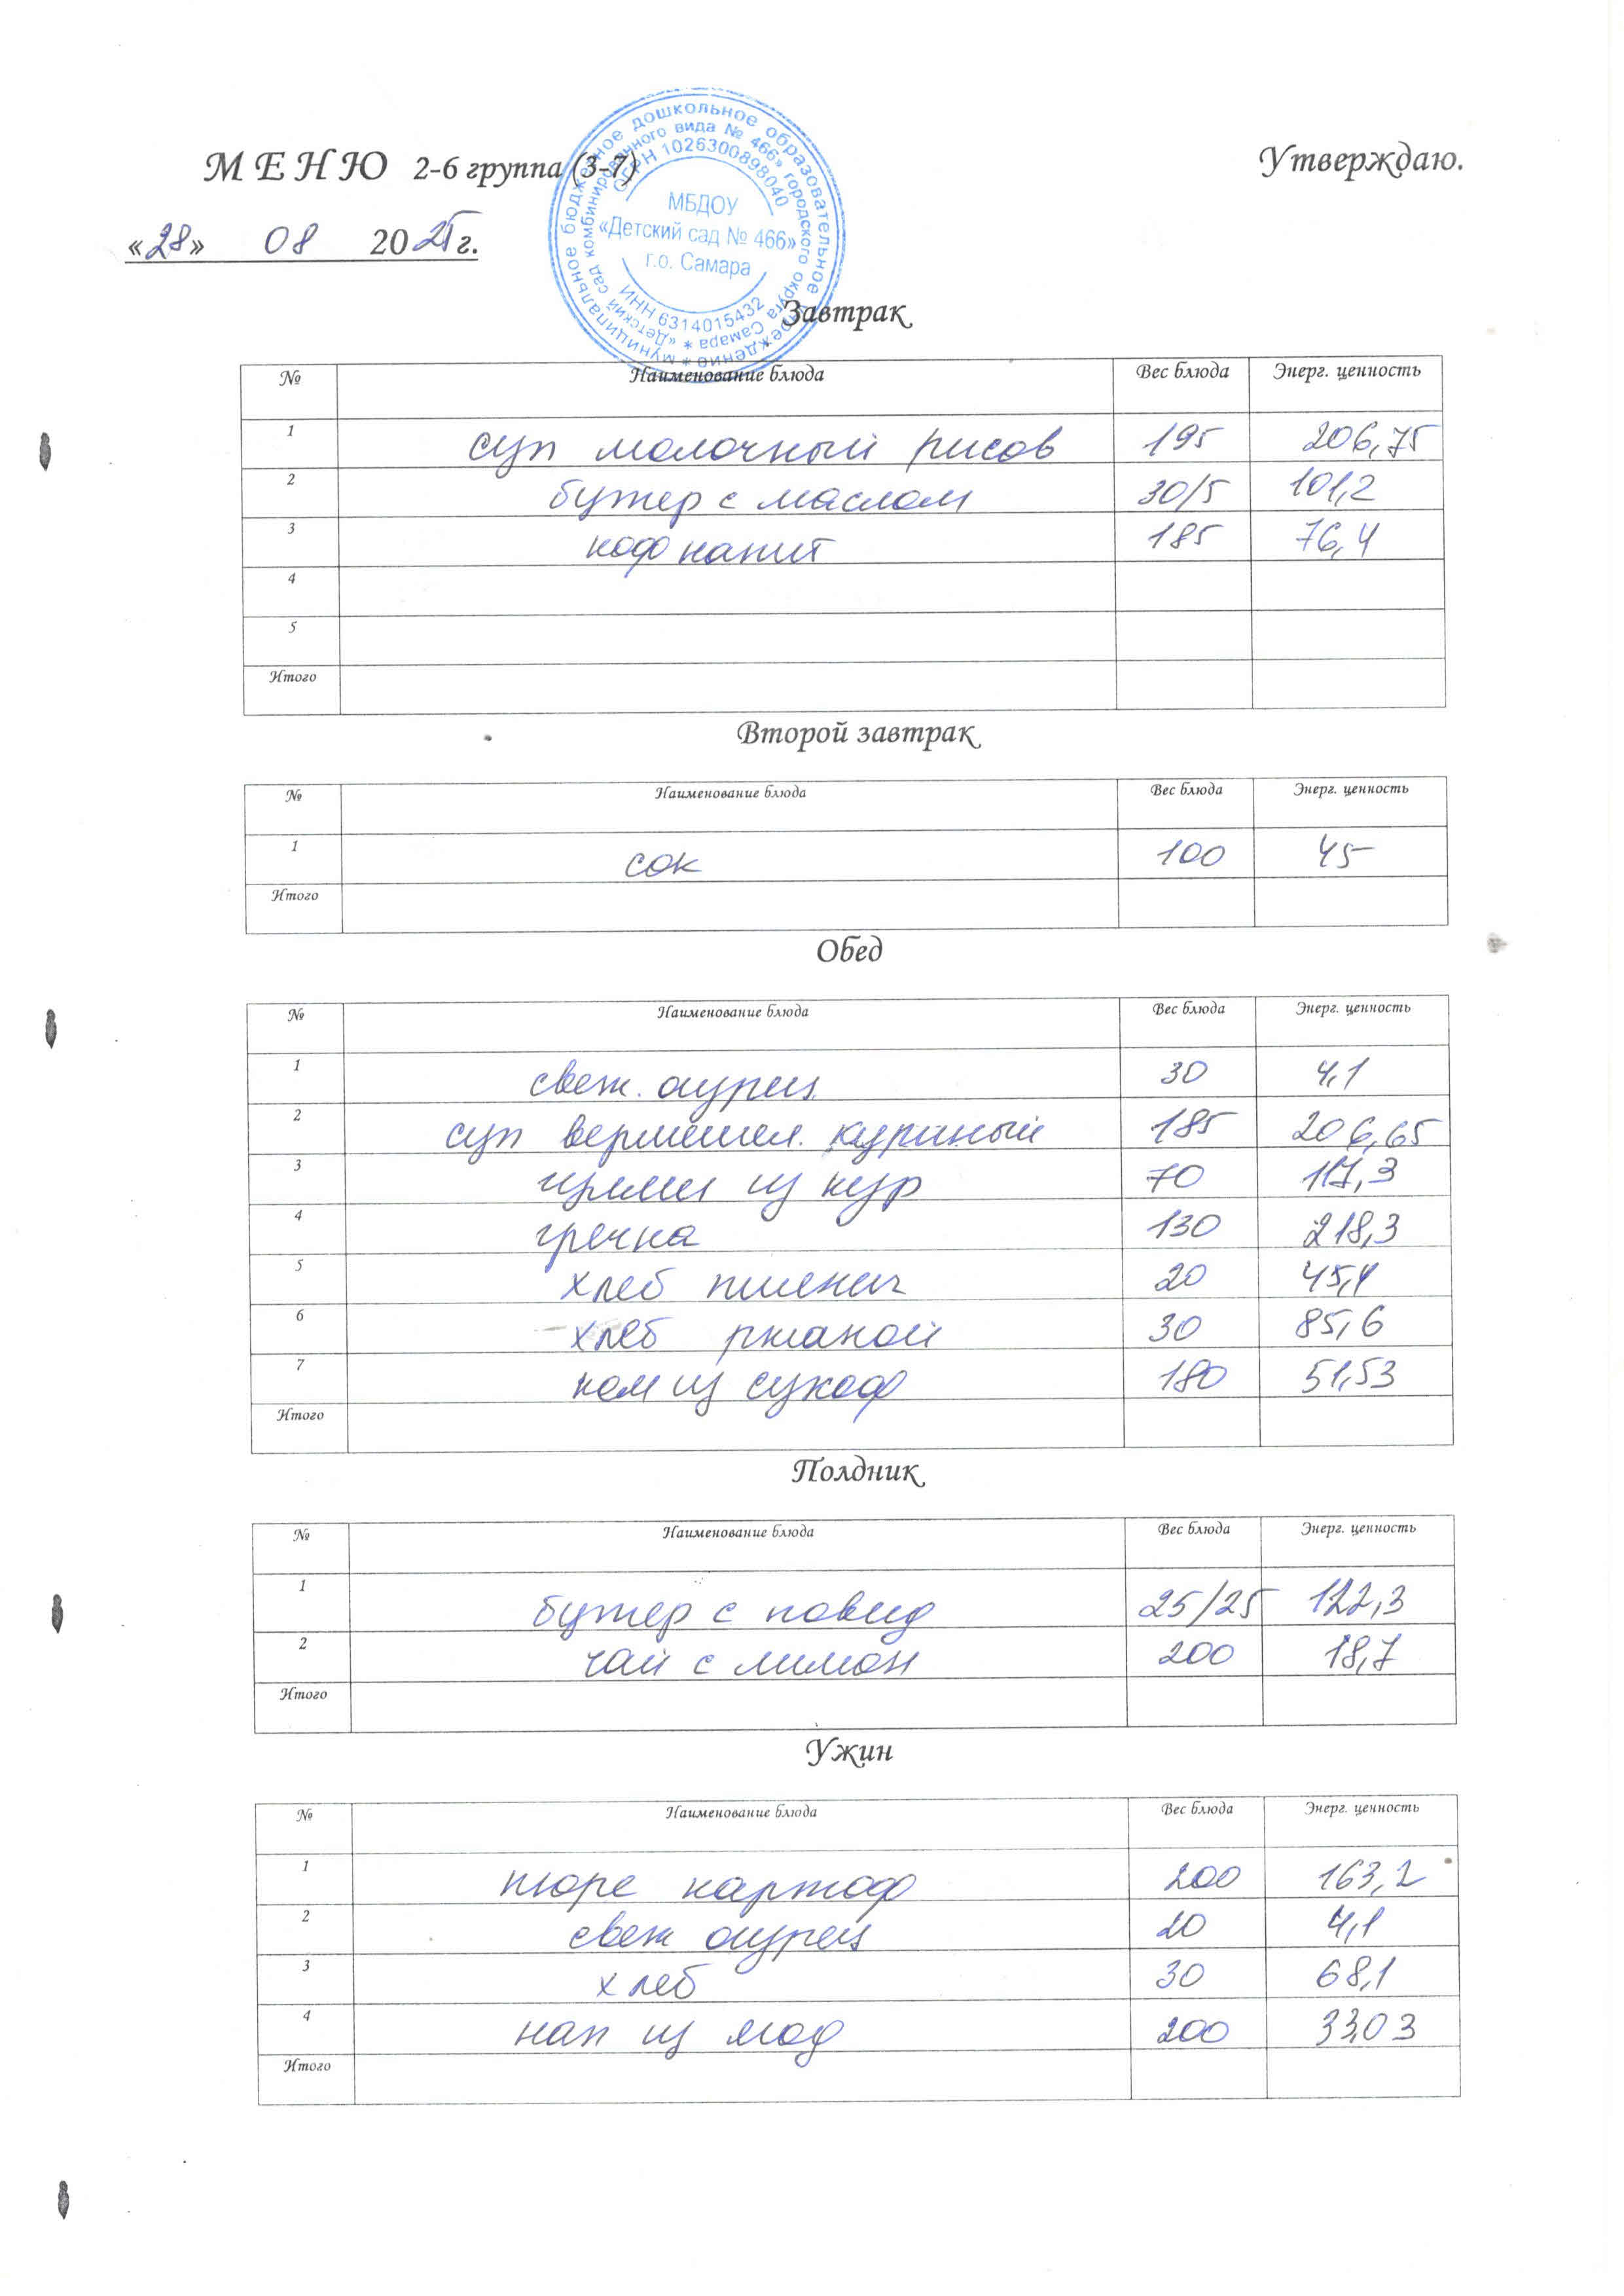 М Е Н Ю 2-6 группа (3-7) Утверждаю.
«28» 08 2025г.
муниципальное бюджетное дошкольное образовательное учреждение
«Детский сад комбинированного вида № 466» городского округа Самара
ОГРН 1026300898040
МБДОУ
«Детский сад № 466»
г.о. Самара
ИНН 6314015432
Завтрак
№ Наименование блюда Вес блюда Энерг. ценность
1 суп молочный рисов 195 206,75
2 бутер с маслом 30/5 101,2
3 коф напит 185 76,4
4
5
Итого
Второй завтрак
№ Наименование блюда Вес блюда Энерг. ценность
1 сок 100 45
Итого
Обед
№ Наименование блюда Вес блюда Энерг. ценность
1 свеж. огурец 30 4,1
2 суп вермишел. куриный 185 206,65
3 из кур 70 117,3
4 гречка 130 218,3
5 хлеб пшенич 20 45,4
6 хлеб ржаной 30 85,6
7 ком из сухоф 180 51,53
Итого
Полдник
№ Наименование блюда Вес блюда Энерг. ценность
1 бутер с повид 25/25 122,3
2 чай с лимон 200 18,7
Итого
Ужин
№ Наименование блюда Вес блюда Энерг. ценность
1 пюре картоф 200 163,2
2 свеж огурец 20 4,1
3 хлеб 30 68,1
4 нап из ягод 200 33,03
Итого